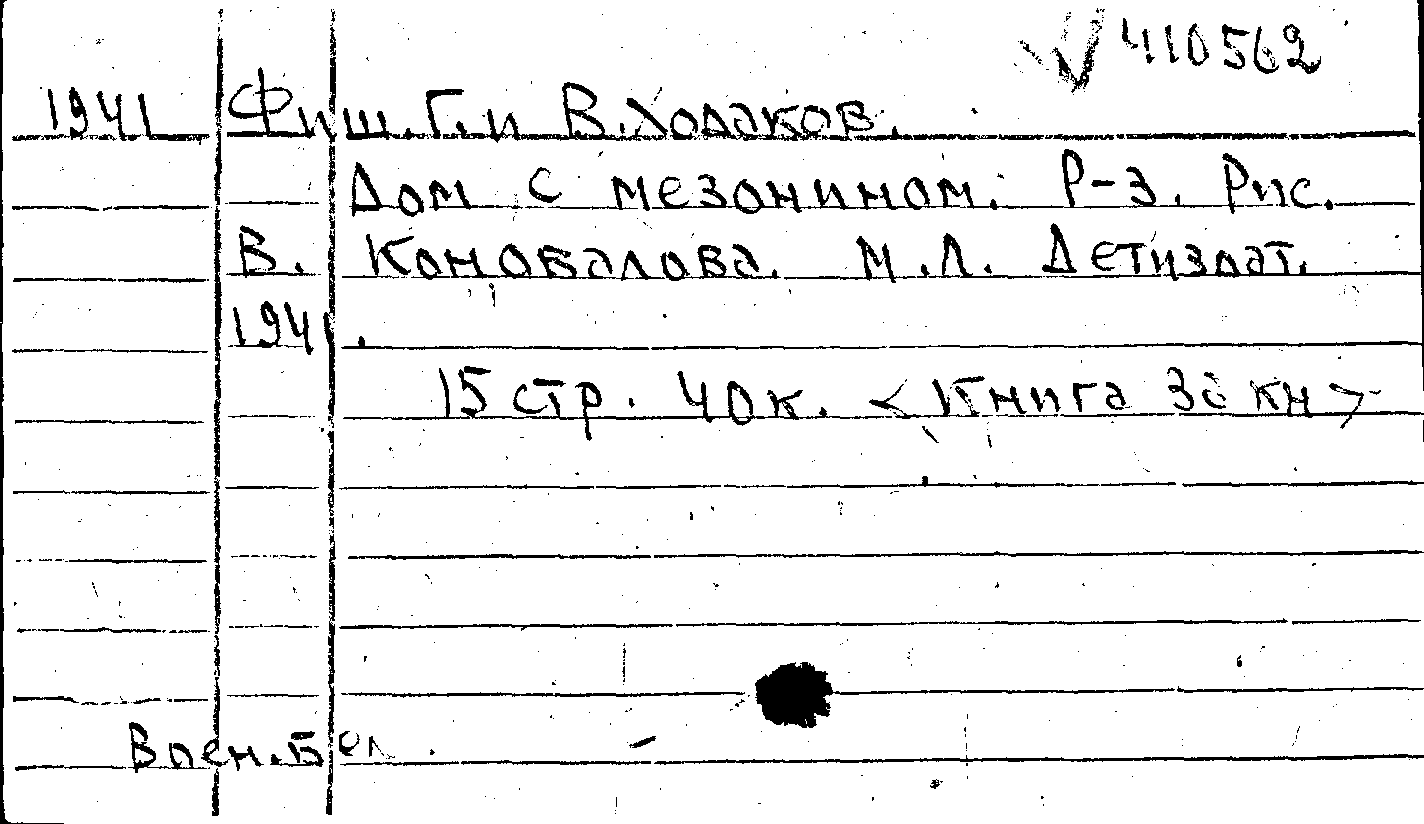 410562
1941 Фиш. Г. и В. Ходаков.
Дом с мезонином. Р-з. Рис.
В. Коновалова. М.Л. Детиздат.
1941.
15 стр. 40к. <Книга за кн>
Воен. Бел.